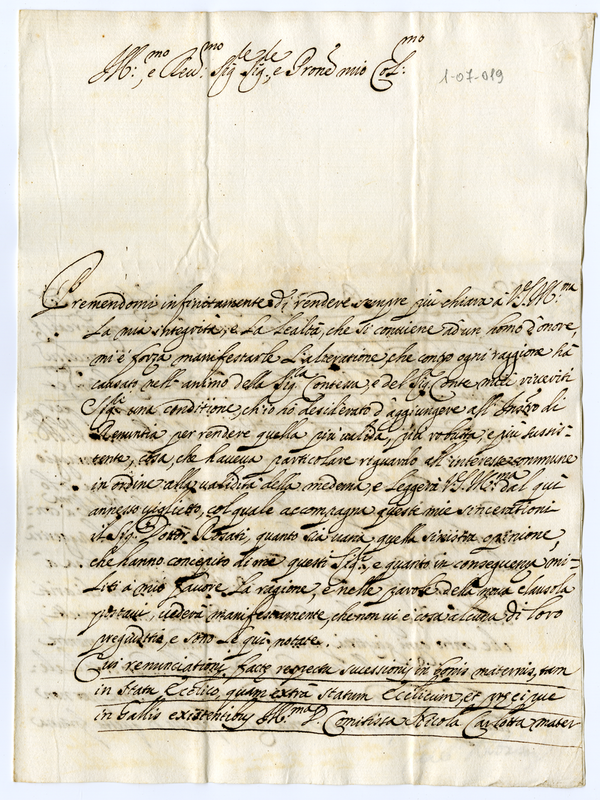 Ill:mo, e Rev:mo Sig.le Sig.le, e Prone mio Col:mo
1-07-019
Premendomi infinitamente di rendere sempre più chiara à V.S. Ill:ma
La mia integrità, e La Lealtà, che si conviene ad un homo d'onore,
mi è forza manifestarle L'alteratione che contro ogni raggione hà
causato nell'animo della Sig.ra Contessa, e del Sig. Conte miei riveriti
Sig.ri una conditione, ch'io hò desiderato d'aggiungere all'
Renuntia per rendere quella più valida, più robusta, e più sussis-
tente, Cosa, che haveva particolare riguardo all'interesse commune
in ordine alla validità della medema, e Leggerà V.S. Ill:ma dal quì
annesso viglietto, col quale accompagna queste mie sincerationi
il Sig. Dottr. Rosati, quanto sia vana quella sinistra opinione,
che hanno concepito di me questi Sig.ri, e quanto in conseguenza mi-
liti à mio favore La ragione, e nelle parole della nova clausola
vederà manifestamente, che non vi è cosa alcuna di Loro
pregiuditio, e sono Le quì notate.
renunciationi facte respectu sucessionis in bonis maternis, tam
in Statu Ecclico, quam extrà Statum Ecclicum, et
in Gallis existentibus Ill:ma D. Comitissa Nicola Carlotta mater